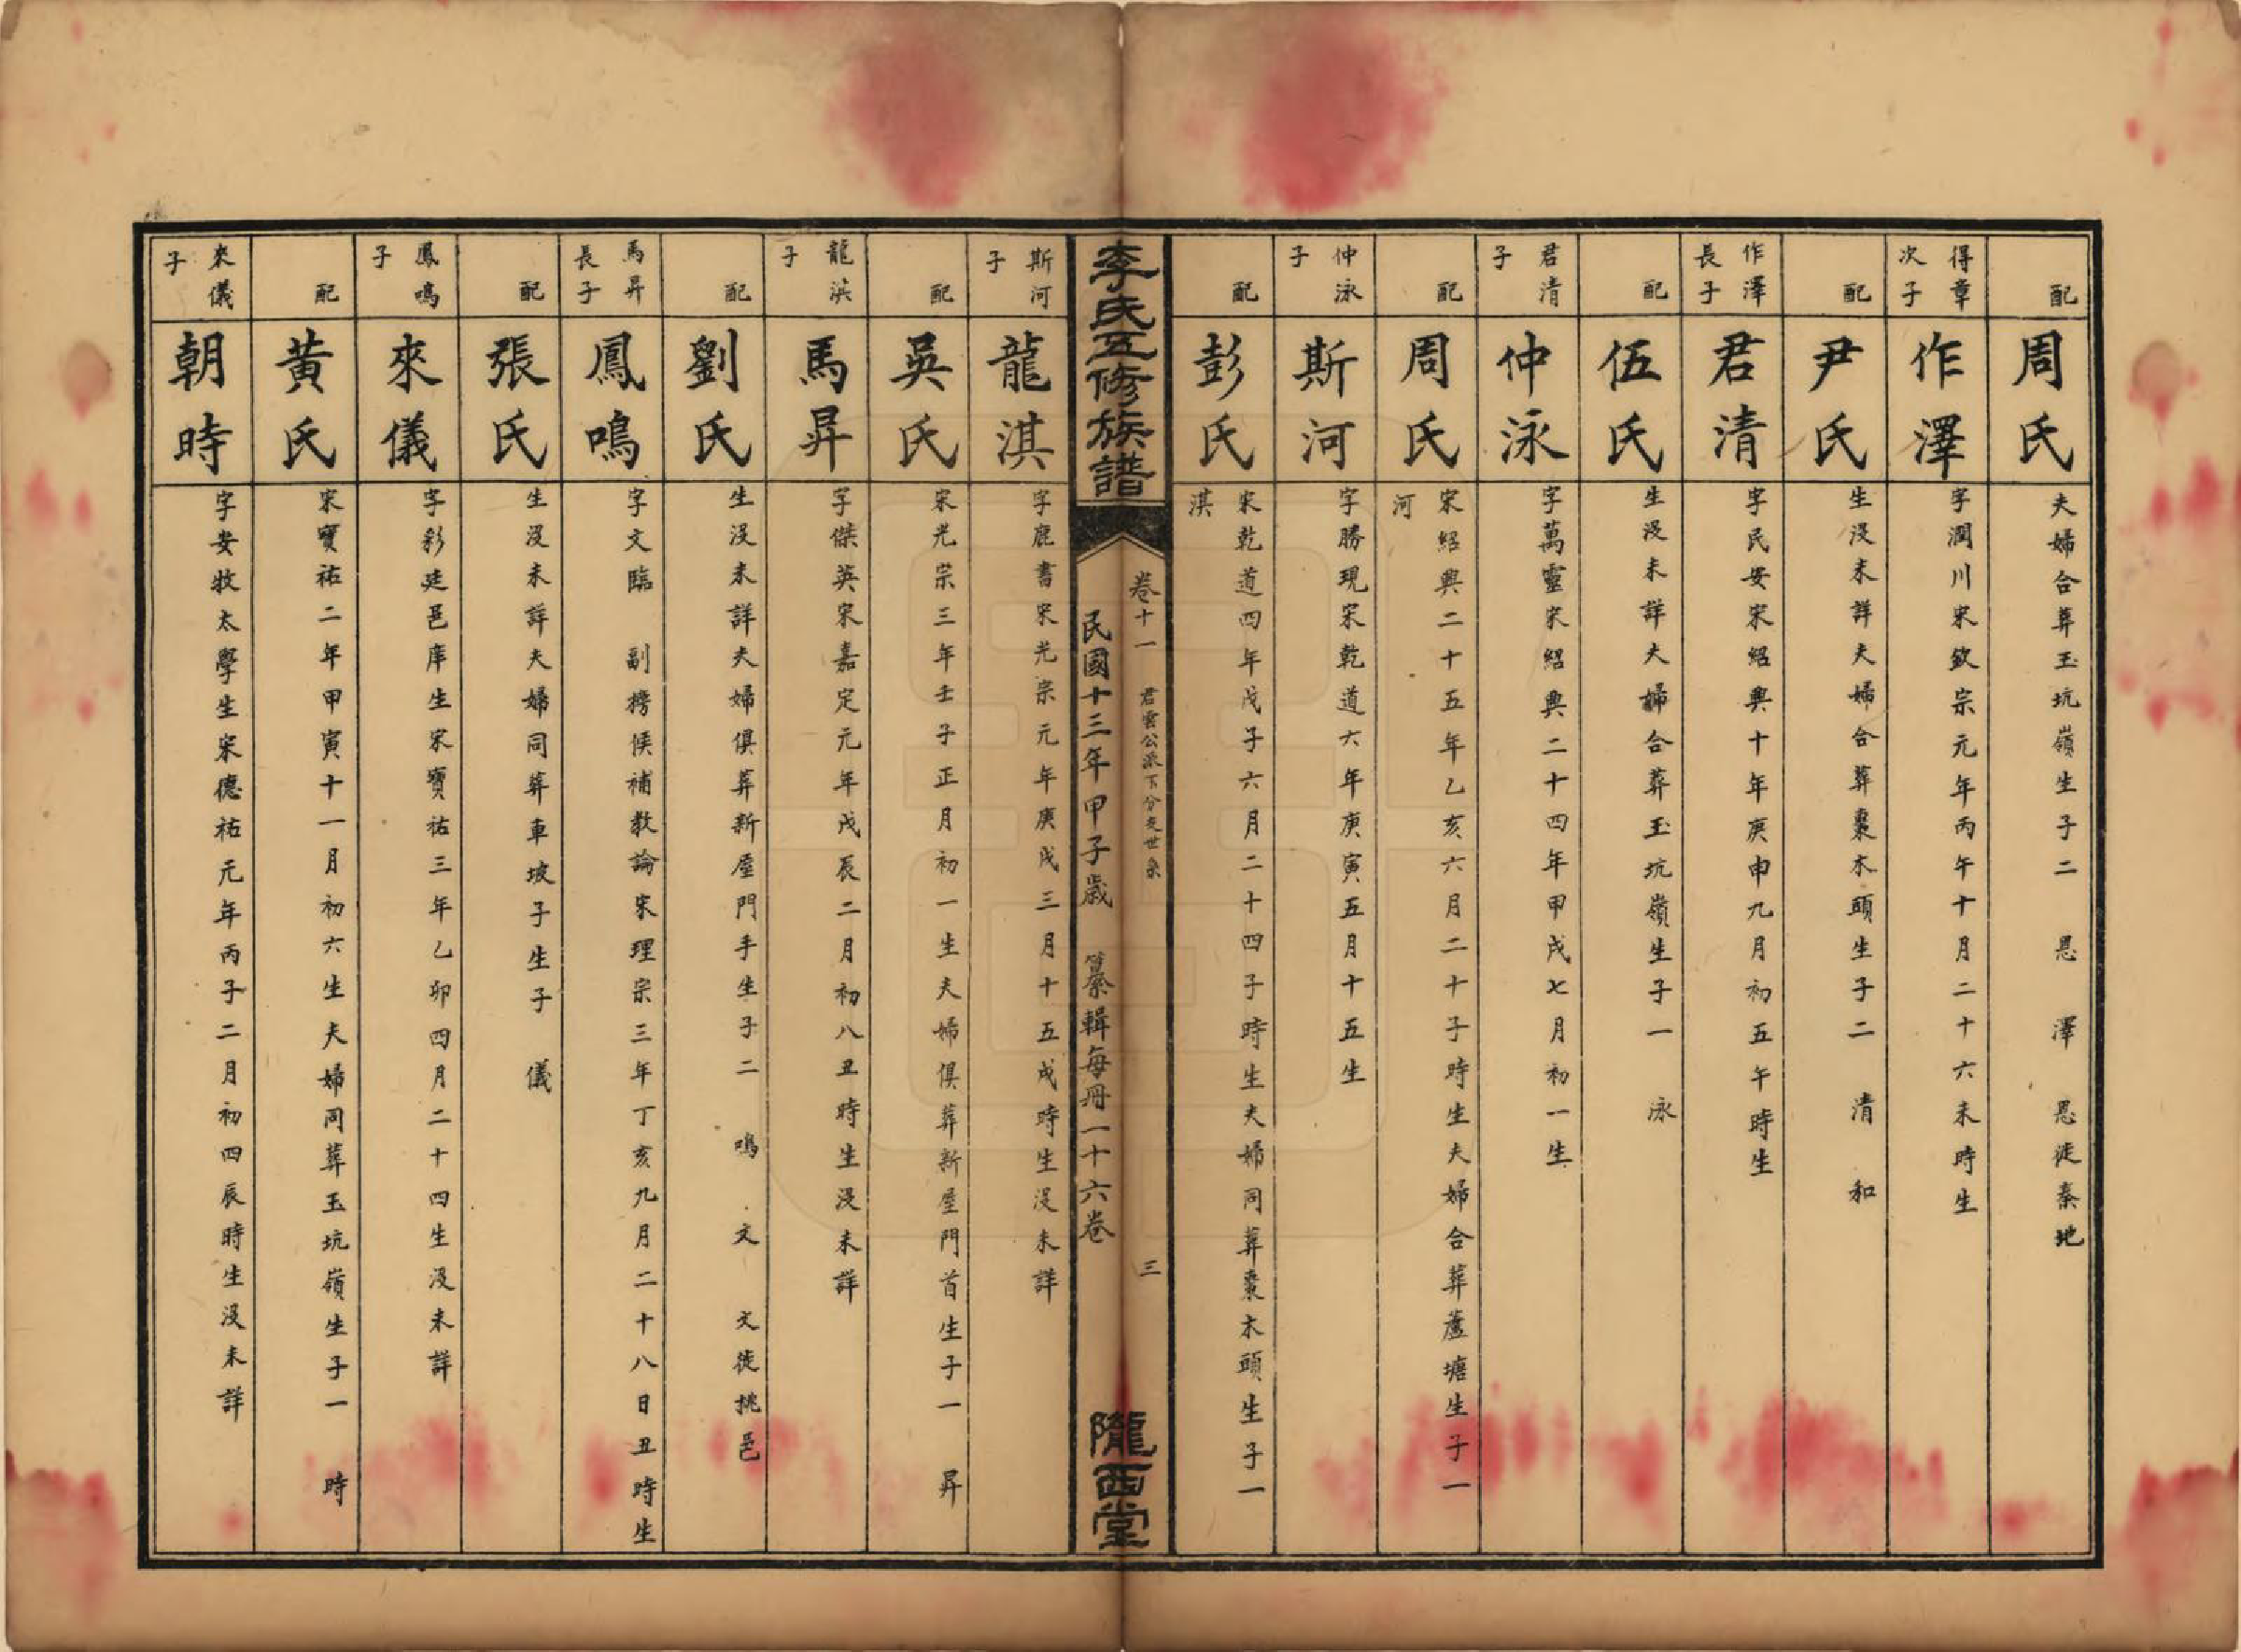 配 周氏 夫婦合葬玉坑嶺生子二 恩 澤 恩徙秦地
得章次子 作澤 字潤川宋欽宗元年丙午十月二十六未時生
配 尹氏 生沒未詳夫婦合葬棗木頭生子二 清 和
作澤長子 君清 字民安宋紹興十年庚申九月初五午時生
配 伍氏 生沒未詳夫婦合葬玉坑嶺生子一 泳
君清子 仲泳 字萬靈宋紹興二十四年甲戌七月初一生
配 周氏 宋紹興二十五年乙亥六月二十子時生夫婦合葬蘆塘生子一
河
仲泳子 斯河 字勝現宋乾道六年庚寅五月十五生
配 彭氏 宋乾道四年戊子六月二十四子時生夫婦同葬棗木頭生子一
淇
李氏五修族譜
卷十一 君雲公派下分支世系 三
民國十三年甲子歲 纂輯每冊一十六卷
隴西堂
斯河子 龍淇 字鹿書宋光宗元年庚戌三月十五戌時生沒未詳
配 吳氏 宋光宗三年壬子正月初一生夫婦俱葬新屋門首生子一 昇
龍淇子 馬昇 字傑英宋嘉定元年戊辰二月初八丑時生沒未詳
配 劉氏 生沒未詳夫婦俱葬新屋門手生子二 鳴 文 文徙桃邑
馬昇長子 鳳鳴 字文臨 副榜候補教諭宋理宗三年丁亥九月二十八日丑時生
配 張氏 生沒未詳夫婦同葬車坡子生子 儀
鳳鳴子 來儀 字彩廷邑庠生宋寶祐三年乙卯四月二十四生沒未詳
配 黃氏 宋寶祐二年甲寅十一月初六生夫婦同葬玉坑嶺生子一 時
來儀子 朝時 字安牧太學生宋德祐元年丙子二月初四辰時生沒未詳